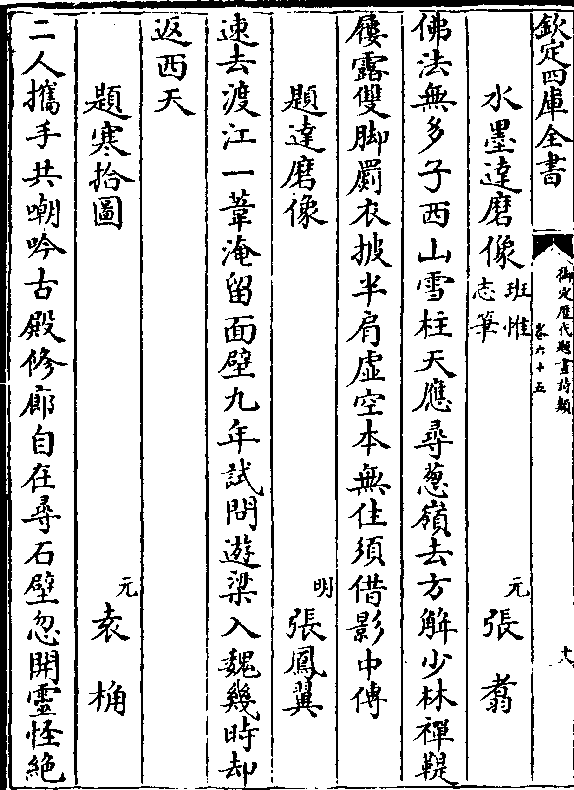 欽定四庫全書
御定歷代題畫詩類
卷六十五
十八
水墨達磨像班惟志筆 元 張翥
佛法無多子西山雪柱天應尋葱嶺去方解少林禪鞮
屨露雙脚罽衣披半肩虛空本無住須借影中傳
題達磨像 明 張鳳翼
速去渡江一葦淹留面壁九年試問遊梁入魏幾時却
返西天
題寒拾圖 元 袁桷
二人攜手共嘲吟古殿修廊自在尋石壁忽開靈怪絶